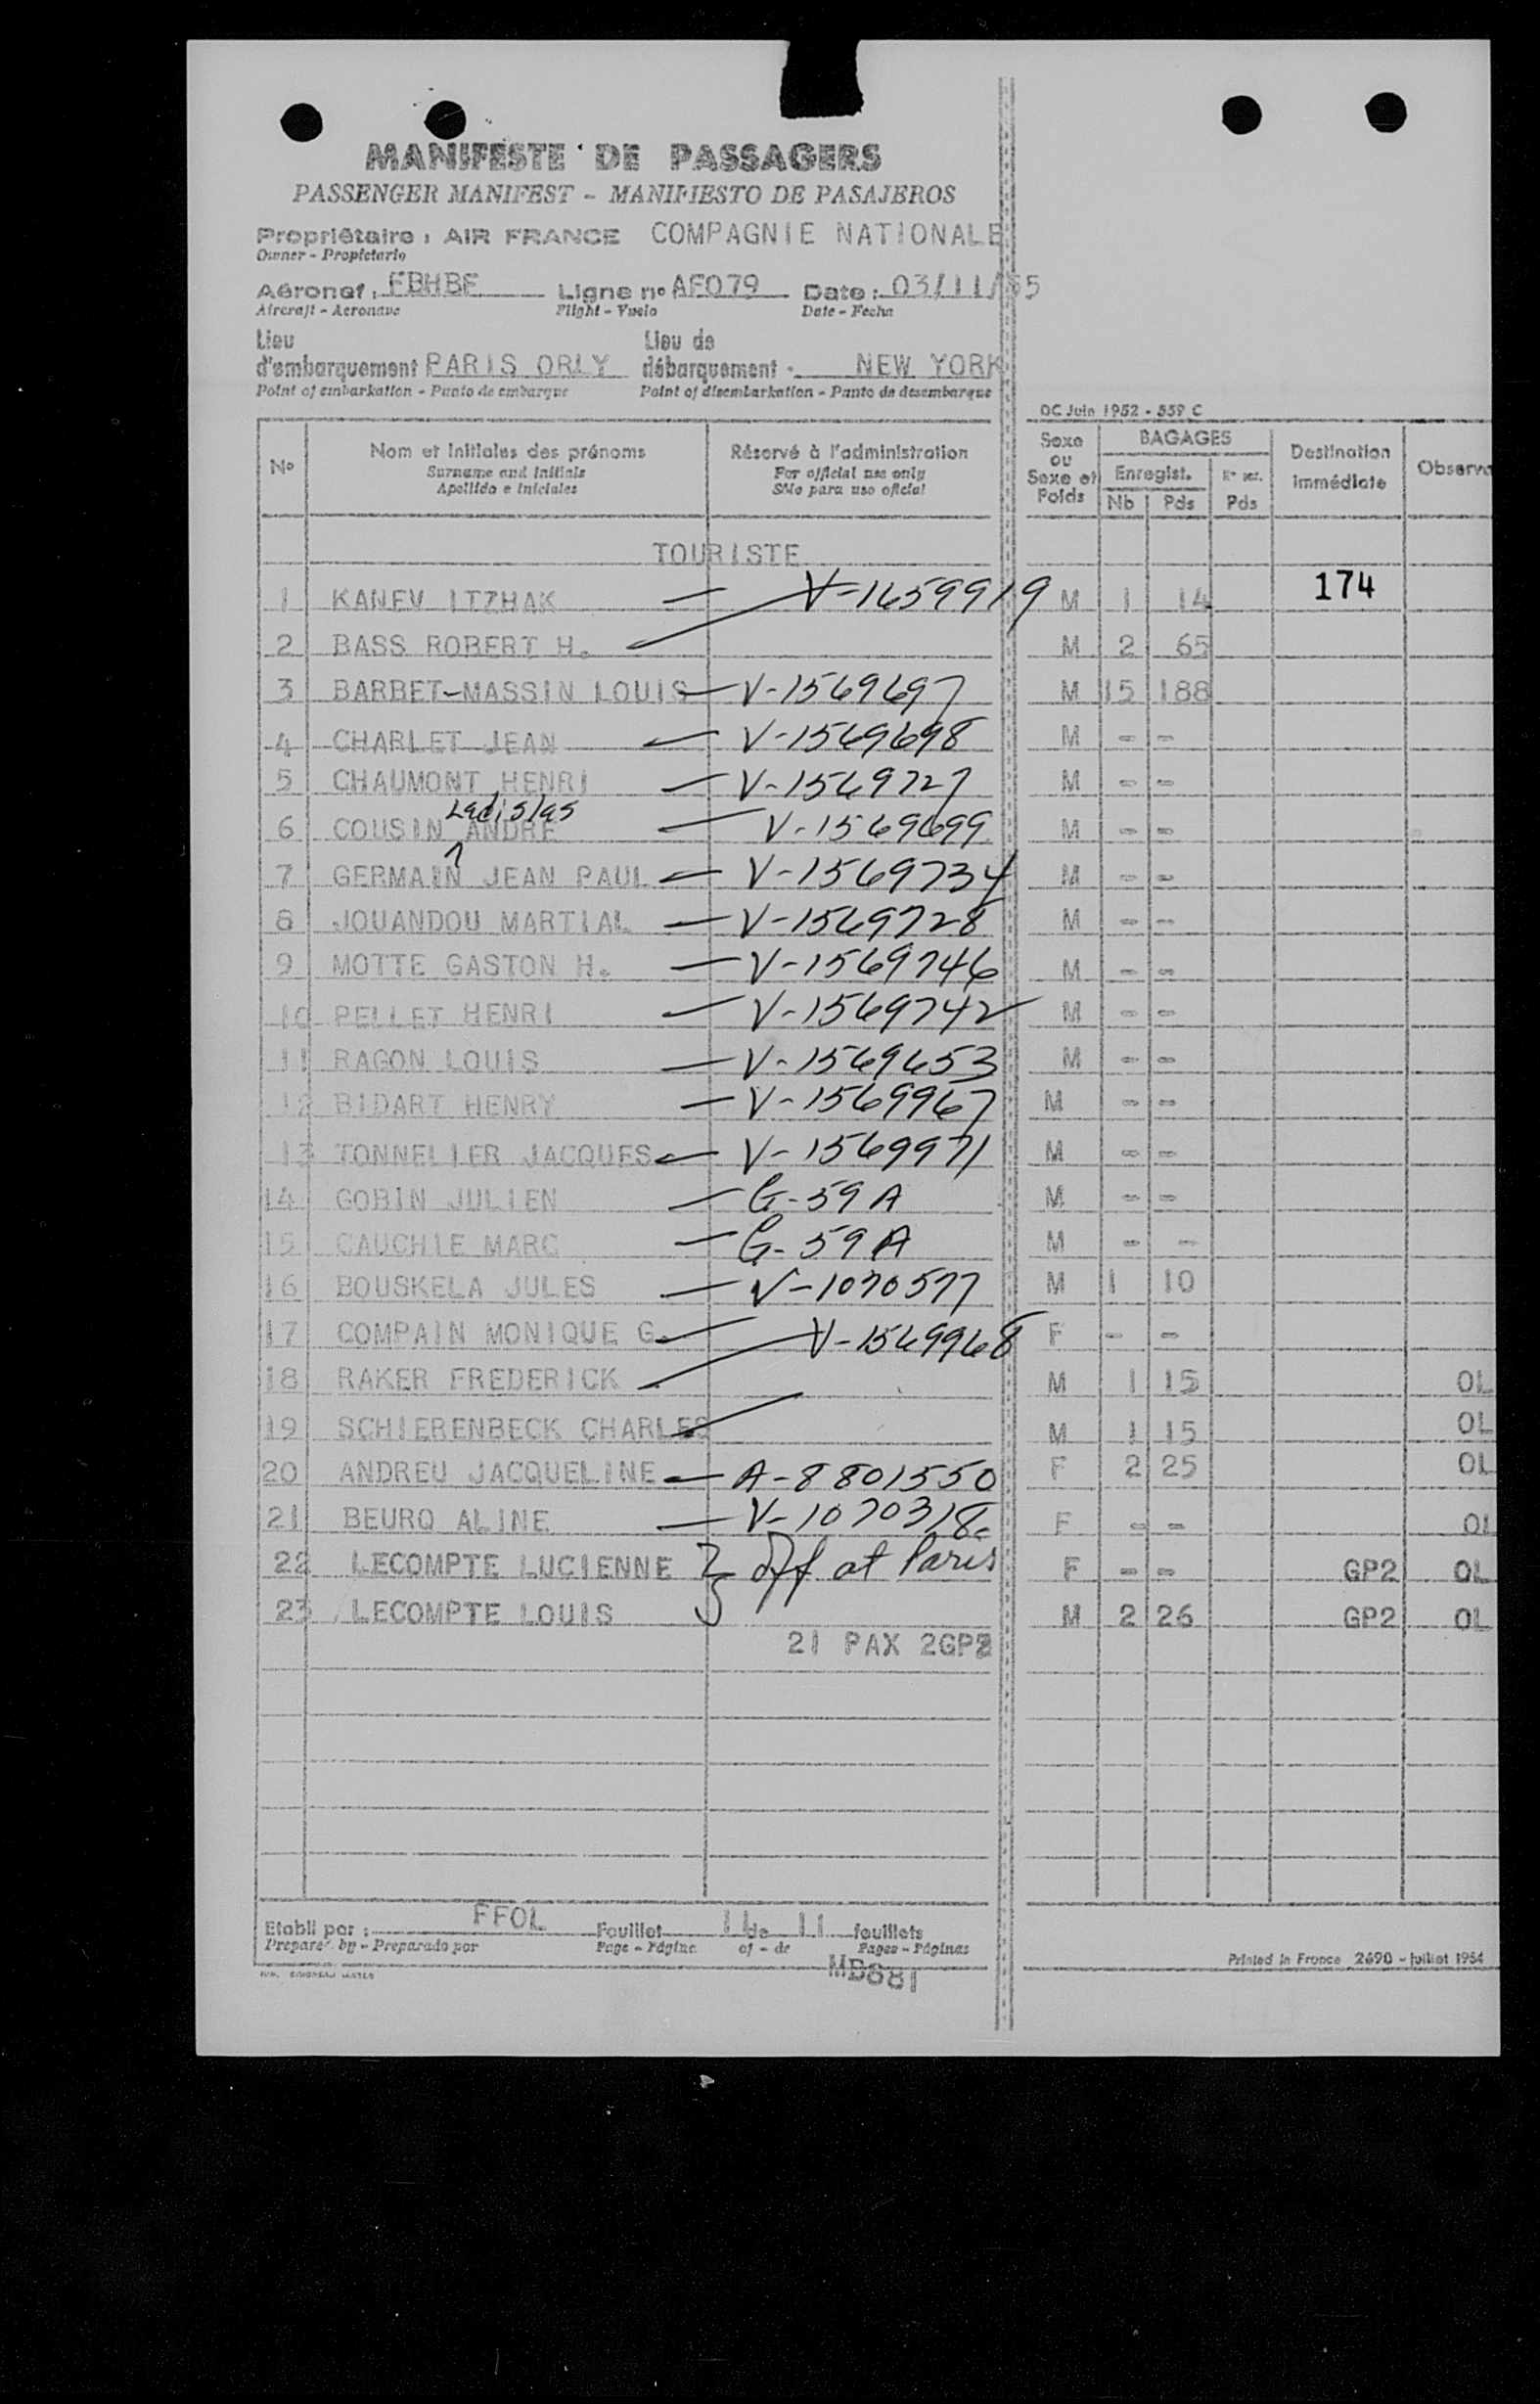 MANIFESTE DE PASSAGERS
PASSENGER MANIFEST - MANIFIESTO DE PASAJEROS
Propriétaire : AIR FRANCE COMPAGNIE NATIONALE
Owner - Propietario
Aéronef : FBHBF Ligne no AF079 Date : 03/11/55
Aircraft - Aeronave Flight - Vuelo Date - Fecha
Lieu Lieu de
d'embarquement PARIS ORLY débarquement - NEW YORK
Point of embarkation - Punto de embarque Point of disembarkation - Punto de desembarque
OC Juin 1952 - 559 C
No Nom et initiales des prénoms Réservé à l'administration Sexe ou Sexe et Poids BAGAGES Destination immédiate Observa
Surname and initials For official use only Enregist.
Apellido e iniciales Sólo para uso oficial Nb Pds Pds
TOURISTE
1 KANEV ITZHAK — M 1 14 174
V-1659919
2 BASS ROBERT H. M 2 65
3 BARBET-MASSIN LOUIS — V-1569697 M 15 188
4 CHARLET JEAN — V-1569698 M - -
5 CHAUMONT HENRI — V-1569727 M - -
Ladislas
6 COUSIN ^ ANDRE — V-1569699 M - -
7 GERMAIN JEAN PAUL — V-1569734 M - -
8 JOUANDOU MARTIAL — V-1569728 M - -
9 MOTTE GASTON H. — V-1569746 M - -
10 PELLET HENRI — V-1569742 M - -
11 RAGON LOUIS — V-1569653 M - -
12 BIDART HENRY — V-1569967 M - -
13 TONNELIER JACQUES — V-1569971 M - -
14 GOBIN JULIEN — G-59 A M - -
15 CAUCHIE MARC — G-59 A M - -
16 BOUSKELA JULES — V-1070577 M 1 10
17 COMPAIN MONIQUE G. — V-1569968 F - -
18 RAKER FREDERICK M 1 15 OL
19 SCHIERENBECK CHARLES M 1 15 OL
20 ANDREU JACQUELINE — A-8801550 F 2 25 OL
21 BEURQ ALINE — V-1070318 F - - OL
22 LECOMPTE LUCIENNE } off at Paris F - - GP2 OL
23 LECOMPTE LOUIS M 2 26 GP2 OL
21 PAX 2GP2
Etabli par : FFOL Feuillet 11 de 11 feuillets
Prepared by - Preparado por Page - Página of - de Pages - Páginas
MB881
Printed in France 2690 - juillet 1954